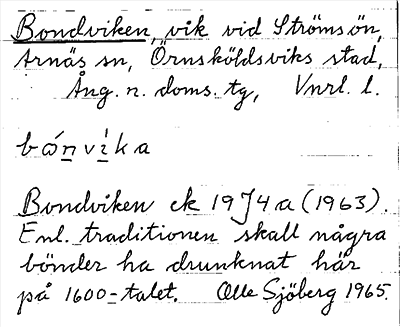 Bondviken, vik vid Strömsön,
Arnäs sn, Örnsköldsviks stad,
Ång. n. doms. tg, Vnrl. l.
bónvìka
Bondviken ek 19J4a (1963).
Enl. traditionen skall några
bönder ha drunknat här
på 1600-talet. Olle Sjöberg 1965.